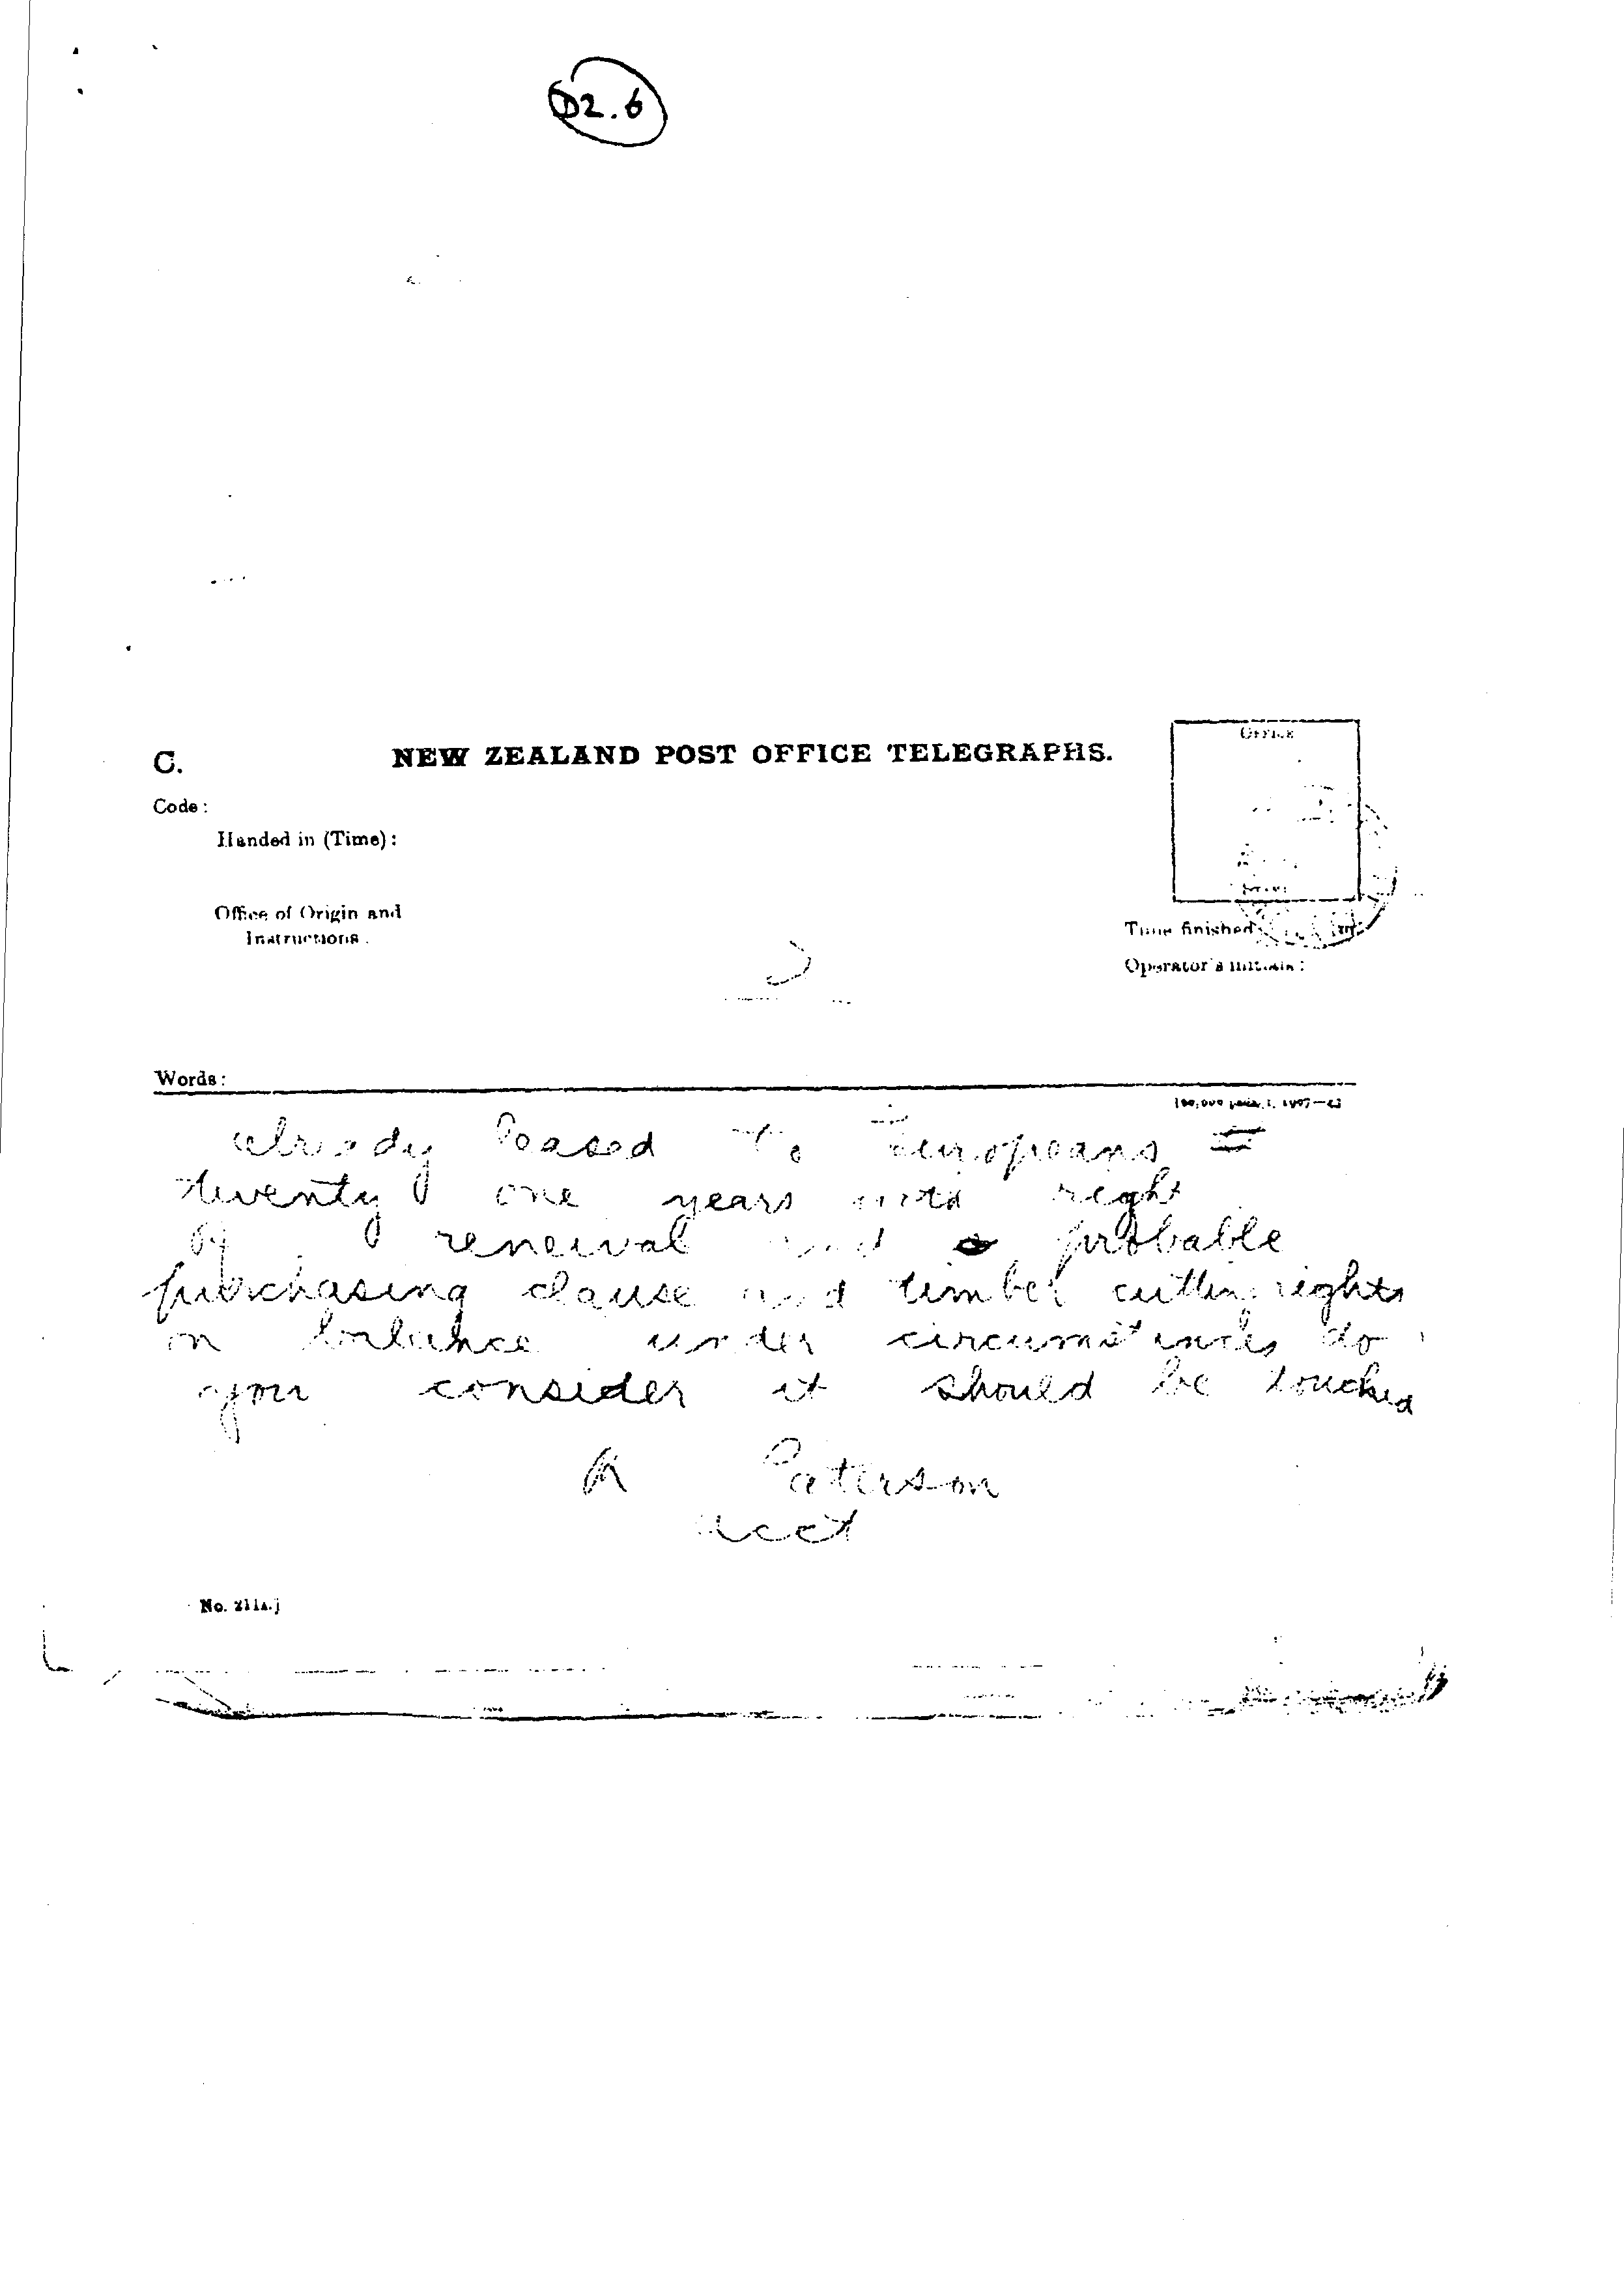 D2.6
C.
NEW ZEALAND POST OFFICE TELEGRAPHS.
OFFICE
Code :
Handed in (Time) :
Office of Origin and
Instructions.
Time finished
Operator's initials :
Words :
already leased to Europeans
twenty one years with right
of renewal and a probable
purchasing clause and timber cutting rights
on balance under circumstances do
you consider it should be touched
Paterson
acct
No. 211A.]